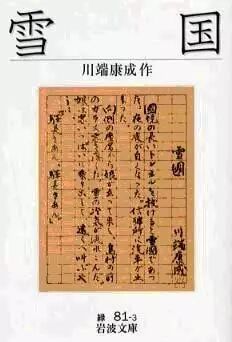 雪国
川端康成作
雪國
川端康成
國境の長いトンネルを抜けると雪國であつ
た。夜の底が白くなつた。信號所に汽車が止
まつた。
向側の座席から娘が立つて来て、島村の前
のガラス窓を落した。雪の冷気が流れこんだ。
娘は窓いつぱいに乗り出して、遠くへ叫ぶや
「駅長さあん、駅長さあん。」
緑 81-3
岩波文庫